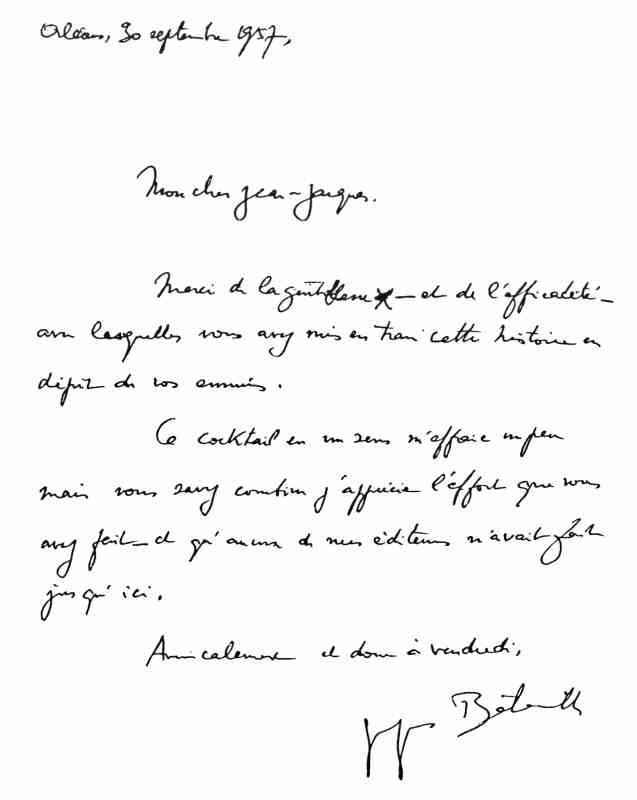 Orléans, 30 septembre 1957,
Mon cher Jean-Jacques.
Merci de la gentillesse — et de l'efficacité —
avec lesquelles vous avez mis en train cette histoire en
dépit de vos ennuis.
Ce cocktail en un sens m'effraie un peu
mais vous savez combien j'apprécie l'effort que vous
avez fait — et qu'aucun de mes éditeurs n'avait fait
jusqu'ici.
Amicalement et donc à vendredi,